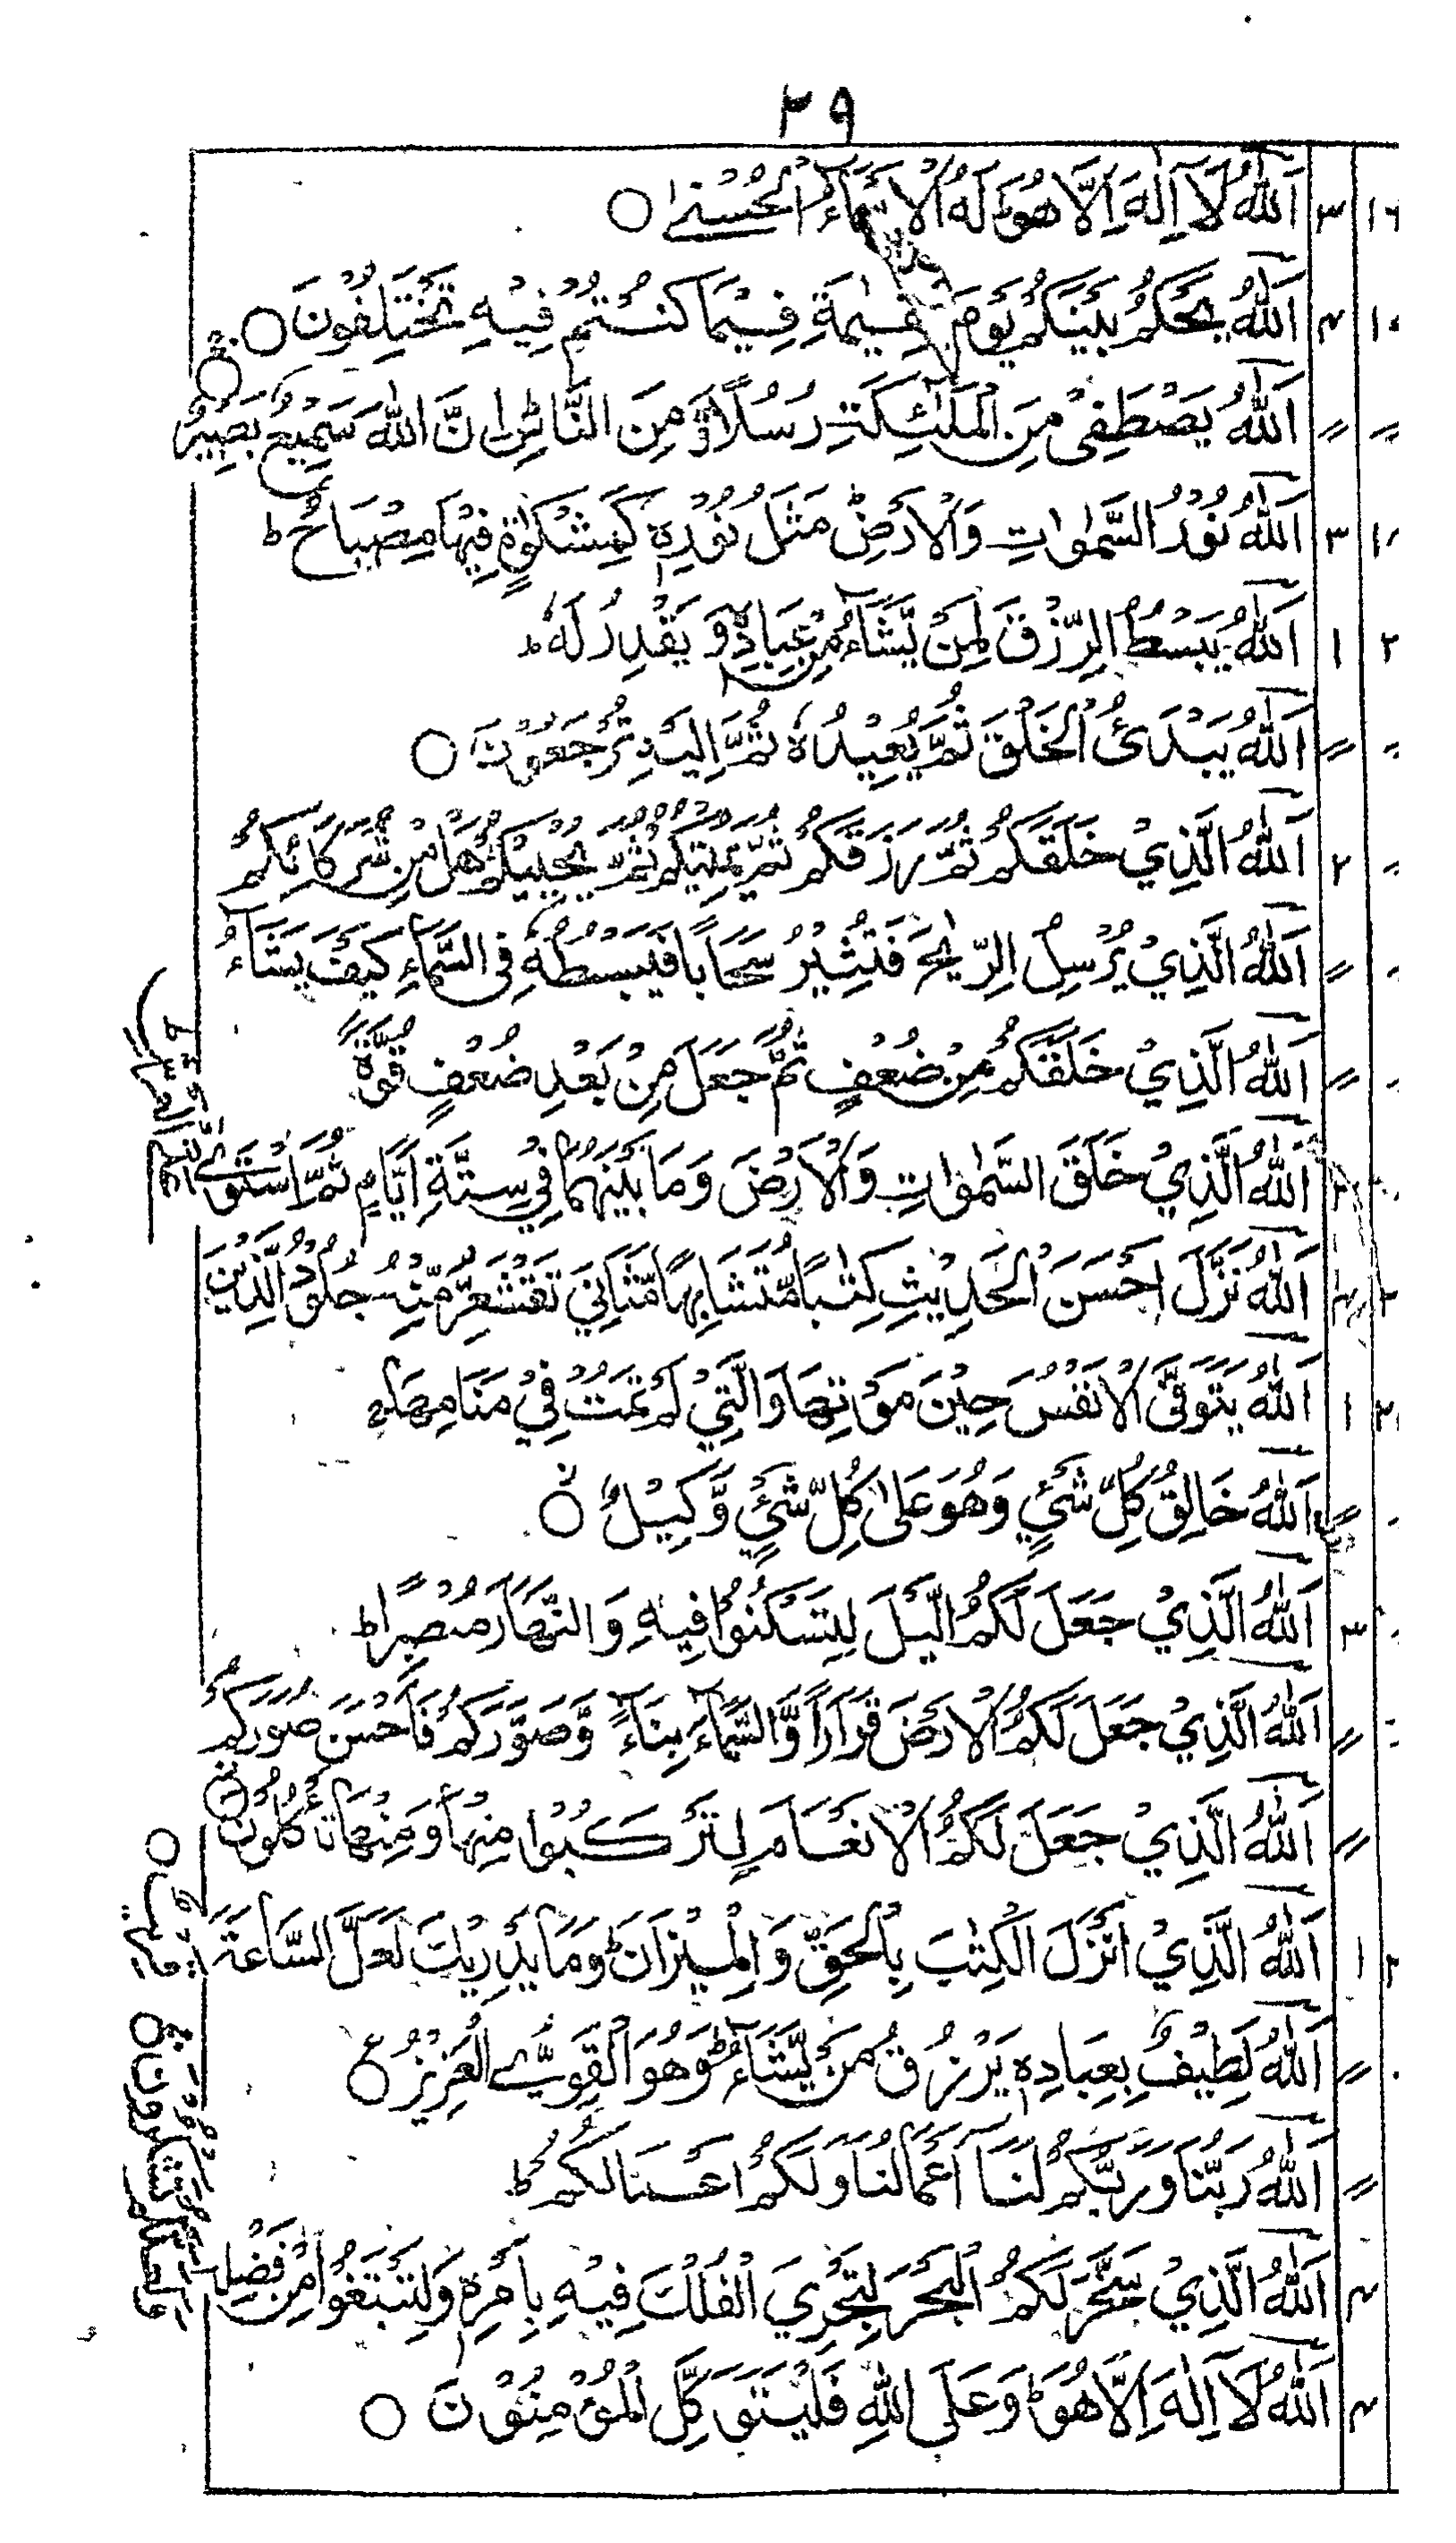 ٢٩
١٦ ٣ اَللّٰهُ لَآ اِلٰهَ اِلَّا هُوَ لَهُ الْاَسْمَآءُ الْحُسْنٰى ○
٤ اَللّٰهُ يَحْكُمُ بَيْنَكُمْ يَوْمَ الْقِيٰمَةِ فِيْمَا كُنْتُمْ فِيْهِ تَخْتَلِفُوْنَ ○
〃 〃 اَللّٰهُ يَصْطَفِىْ مِنَ الْمَلٰٓئِكَةِ رُسُلًا وَّمِنَ النَّاسِ ط اِنَّ اللّٰهَ سَمِيْعٌ بَصِيْرٌ ○
٣ اَللّٰهُ نُوْرُ السَّمٰوٰتِ وَالْاَرْضِ ط مَثَلُ نُوْرِهٖ كَمِشْكٰوةٍ فِيْهَا مِصْبَاحٌ ط
١ اَللّٰهُ يَبْسُطُ الرِّزْقَ لِمَنْ يَّشَآءُ مِنْ عِبَادِهٖ وَيَقْدِرُ لَهٗ ط
〃 اَللّٰهُ يَبْدَئُ الْخَلْقَ ثُمَّ يُعِيْدُهٗ ثُمَّ اِلَيْهِ تُرْجَعُوْنَ ○
٢ اَللّٰهُ الَّذِيْ خَلَقَكُمْ ثُمَّ رَزَقَكُمْ ثُمَّ يُمِيْتُكُمْ ثُمَّ يُحْيِيْكُمْ هَلْ مِنْ شُرَكَآئِكُمْ
〃 اَللّٰهُ الَّذِيْ يُرْسِلُ الرِّيٰحَ فَتُثِيْرُ سَحَابًا فَيَبْسُطُهٗ فِى السَّمَآءِ كَيْفَ يَشَآءُ
〃 اَللّٰهُ الَّذِيْ خَلَقَكُمْ مِّنْ ضُعْفٍ ثُمَّ جَعَلَ مِنْ بَعْدِ ضُعْفٍ قُوَّةً
اَللّٰهُ الَّذِيْ خَلَقَ السَّمٰوٰتِ وَالْاَرْضَ وَمَا بَيْنَهُمَا فِيْ سِتَّةِ اَيَّامٍ ثُمَّ اسْتَوٰى عَلَى الْعَرْشِ ط
اَللّٰهُ نَزَّلَ اَحْسَنَ الْحَدِيْثِ كِتٰبًا مُّتَشَابِهًا مَّثَانِيَ تَقْشَعِرُّ مِنْهُ جُلُوْدُ الَّذِيْنَ
١ اَللّٰهُ يَتَوَفَّى الْاَنْفُسَ حِيْنَ مَوْتِهَا وَالَّتِيْ لَمْ تَمُتْ فِيْ مَنَامِهَا ج
〃 اَللّٰهُ خَالِقُ كُلِّ شَيْءٍ وَهُوَ عَلٰى كُلِّ شَيْءٍ وَّكِيْلٌ ○
٣ اَللّٰهُ الَّذِيْ جَعَلَ لَكُمُ الَّيْلَ لِتَسْكُنُوْا فِيْهِ وَالنَّهَارَ مُبْصِرًا ط
〃 اَللّٰهُ الَّذِيْ جَعَلَ لَكُمُ الْاَرْضَ قَرَارًا وَّالسَّمَآءَ بِنَآءً وَّصَوَّرَكُمْ فَاَحْسَنَ صُوَرَكُمْ
〃 اَللّٰهُ الَّذِيْ جَعَلَ لَكُمُ الْاَنْعَامَ لِتَرْكَبُوْا مِنْهَا وَمِنْهَا تَاْكُلُوْنَ ○
١ اَللّٰهُ الَّذِيْ اَنْزَلَ الْكِتٰبَ بِالْحَقِّ وَالْمِيْزَانَ ط وَمَا يُدْرِيْكَ لَعَلَّ السَّاعَةَ قَرِيْبٌ ○
〃 اَللّٰهُ لَطِيْفٌۢ بِعِبَادِهٖ يَرْزُقُ مَنْ يَّشَآءُ ج وَهُوَ الْقَوِيُّ الْعَزِيْزُ ○ ع
〃 اَللّٰهُ رَبُّنَا وَرَبُّكُمْ لَنَآ اَعْمَالُنَا وَلَكُمْ اَعْمَالُكُمْ ط
٤ اَللّٰهُ الَّذِيْ سَخَّرَ لَكُمُ الْبَحْرَ لِتَجْرِيَ الْفُلْكُ فِيْهِ بِاَمْرِهٖ وَلِتَبْتَغُوْا مِنْ فَضْلِهٖ وَلَعَلَّكُمْ تَشْكُرُوْنَ ○ ج
٤ اَللّٰهُ لَآ اِلٰهَ اِلَّا هُوَ ط وَعَلَى اللّٰهِ فَلْيَتَوَكَّلِ الْمُؤْمِنُوْنَ ○